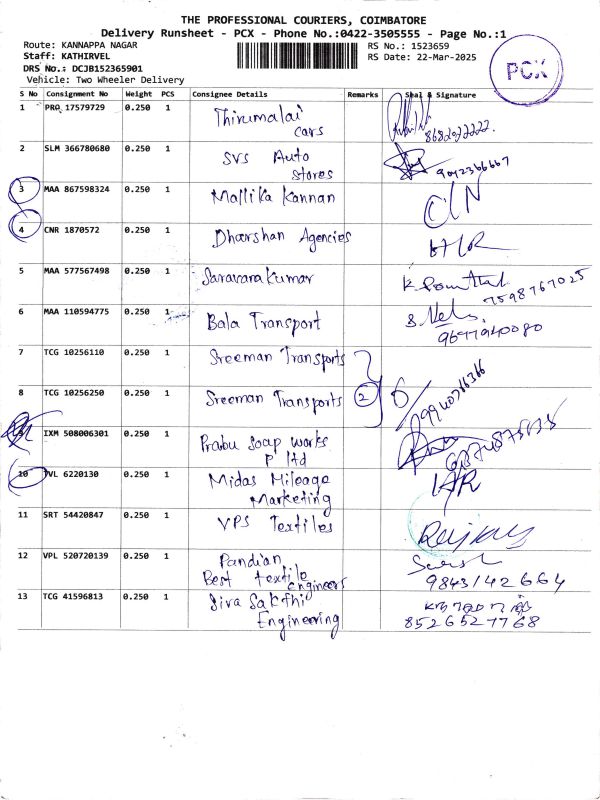 THE PROFESSIONAL COURIERS, COIMBATORE
Delivery Runsheet - PCX - Phone No.:0422-3505555 - Page No.:1
Route: KANNAPPA NAGAR
Staff: KATHIRVEL
DRS No.: DCJB152365901
Vehicle: Two Wheeler Delivery
RS No.: 1523659
RS Date: 22-Mar-2025
PCX
S No Consignment No Weight PCS Consignee Details Remarks Seal & Signature
1 PRQ 17579729 0.250 1 Thirumalai cars
2 SLM 366780680 0.250 1 SVS Auto Stores 9042366667
3 MAA 867598324 0.250 1 Mallika Kannan C/N
4 CNR 1870572 0.250 1 Dharshan Agencies
5 MAA 577567498 0.250 1 Saravana Kumar 7598767025
6 MAA 110594775 0.250 1 Bala Transport
7 TCG 10256110 0.250 1 Sreeman Transports
8 TCG 10256250 0.250 1 Sreeman Transports 2 9940766366
9 IXM 508006301 0.250 1 Prabu Soap works P ltd
10 TVL 6220130 0.250 1 Midas Mileage Marketing
11 SRT 54420847 0.250 1 VPS Textiles
12 VPL 520720139 0.250 1 Pandian Best textile Engineers 9843142664
13 TCG 41596813 0.250 1 Siva Sakthi Engineering 8526527768